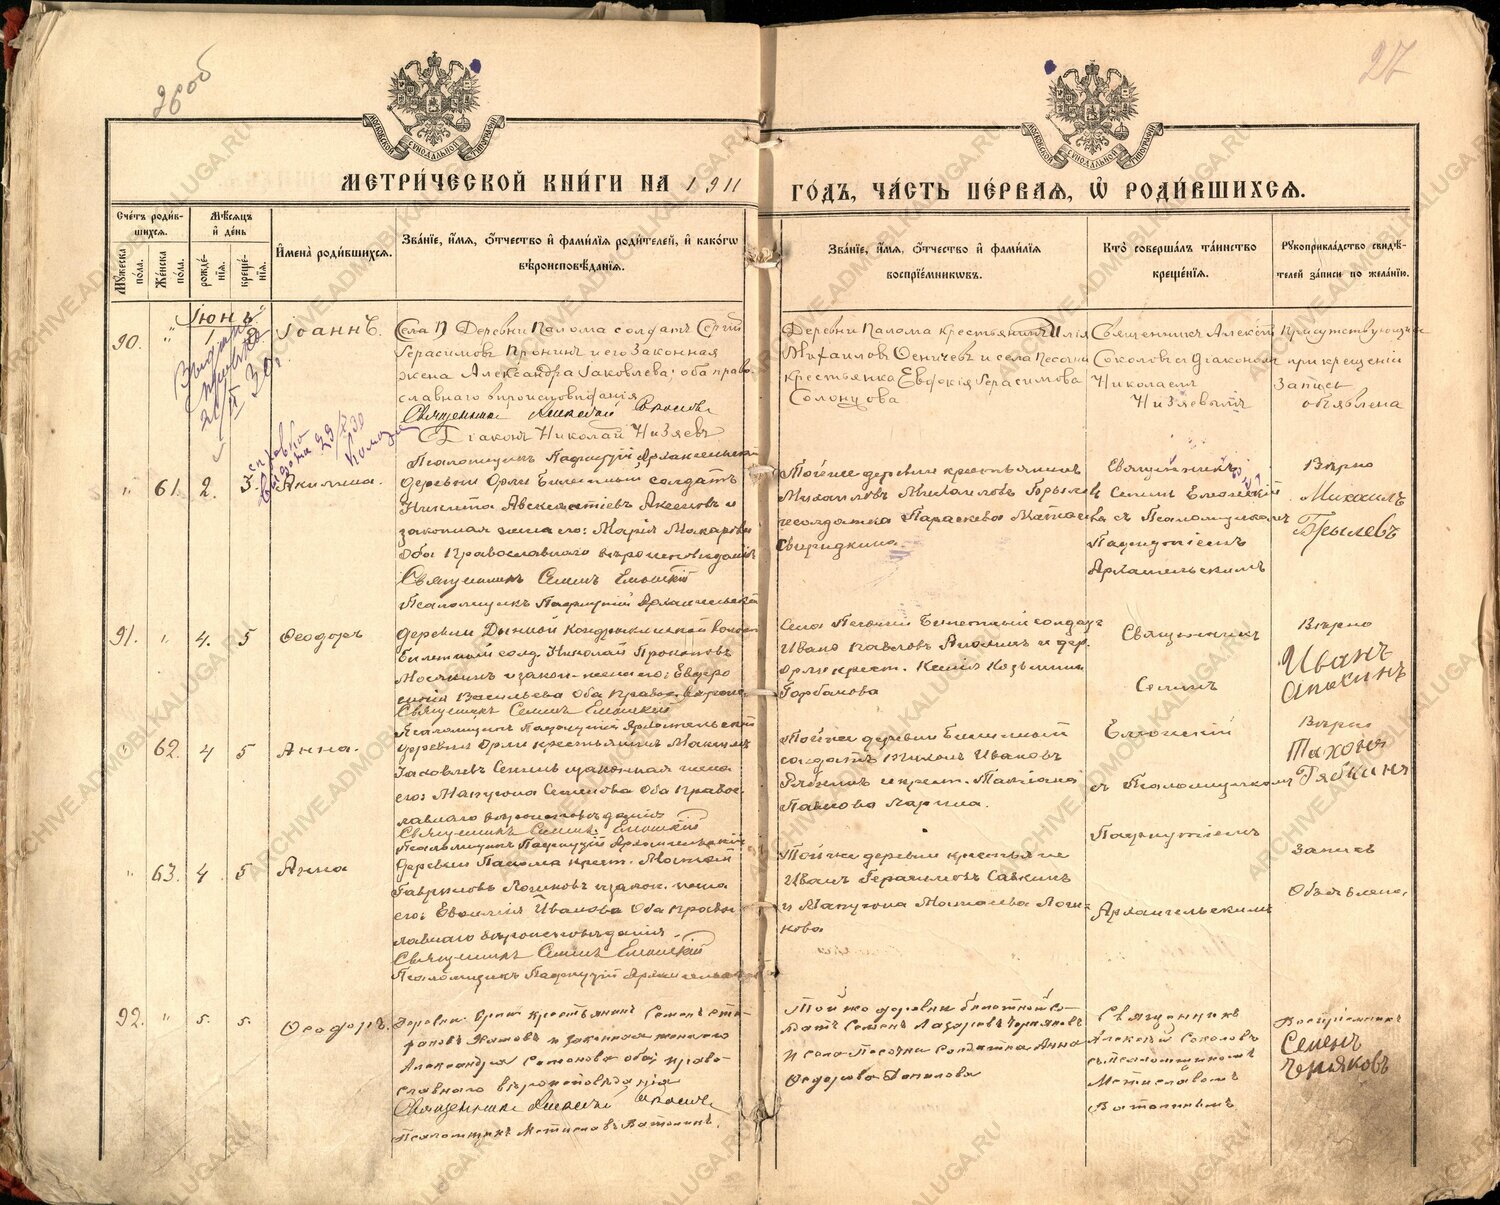 26об
27
МОСКОВСКОЙ СѴНОДАЛЬНОЙ ТИПОГРАФІИ
МОСКОВСКОЙ СѴНОДАЛЬНОЙ ТИПОГРАФІИ
МЕТРИ́ЧЕСКОЙ КНИ́ГИ НА 1911
ГО́ДЪ, ЧА́СТЬ ПЕ́РВАѦ, Ѡ҆ РОДИ́ВШИХСѦ.
Сче́тъ роди́в-
шихсѧ.
Мꙋ́жеска по́ла.
Же́нска по́ла.
Мѣ́сѧцъ
и҆ де́нь
рожде́нїѧ.
креще́нїѧ.
И҆мена̀ роди́вшихсѧ.
Зва́нїе, и҆́мѧ, ѻ҆́тчество и҆ фами́лїѧ роди́телей, и҆ како́гѡ
вѣроисповѣ́данїѧ.
Зва́нїе, и҆́мѧ, ѻ҆́тчество и҆ фами́лїѧ
воспрїе́мникѡвъ.
Кто̀ соверша́лъ та́инство
креще́нїѧ.
Рꙋкоприкла́дство свидѣ́-
телей за́писи по жела́нїю.
Іюнь
90. " 1 2 Іоаннъ.
Деревни Палома солдатъ Сергій
Герасимовъ Пронинъ и его Законная
жена Александра Іаковлева; оба право-
славнаго вѣроисповѣданія
Священникъ Алексій Соколовъ
Діаконъ Николай Низяевъ
Деревни Палома крестьянинъ Илія
Михаиловъ Сеничевъ и села Песочни
крестьянка Евфокія Герасимова
Солонцова
Священникъ Алексій
Соколовъ съ діакономъ
Николаемъ
Низяевымъ
Присутствующимъ
при крещеніи
Запись
объявлена
" 61. 2. 3 Акилина.
Псаломщикъ Пафнутій Архангельскій
Деревни Орли Билетный солдатъ
Никита Авксентіевъ Аксеновъ и
законная жена его: Марія Макарова
Оба Православнаго вѣроисповѣданія
Священникъ Семенъ Елюскій
Псаломщикъ Пафнутій Архангельскій
Той же деревни крестьянинъ
Михаиловъ Михаиловъ Горылевъ
и солдатка Параскева Матвѣева
Свиридкина.
Священникъ
Семенъ Елюскій
съ Псаломщикомъ
Пафнутіемъ
Архангельскимъ
Вѣрно
Михаилъ
Грылевъ
91. " 4. 5 Ѳеодоръ
Деревни Дынной
Билетный солд. Николай Прокопов
Москинъ и закон. жена его: Евфро
синія Васильева Оба Правос. вѣроис.
Священникъ Семенъ Елюскій
Псаломщикъ Пафнутій Архангельскій
Села Песочни Билетный солдатъ
Ивано Павловъ Апохинъ и дер.
Орли крест. Ксенія Козьмина
Горбачова
Священникъ
Семенъ
Вѣрно
Иванъ
Апохинъ
" 62. 4 5 Анна.
Деревни Орли крестьянинъ Максимъ
Іаковлевъ Сенинъ и законная жена
его: Матрона Семенова Оба Правос-
лавнаго вѣроисповѣданія
Священникъ Семенъ Елюскій
Псаломщикъ Пафнутій Архангельскій
Той же деревни Билетный
солдатъ Тихонъ Ивановъ
Рябкинъ и крест. Татіана
Павлова Ларина.
Елюскій
съ Псаломщикомъ
Пафнутіемъ
Вѣрно
Тихонъ
Рябкинъ
" 63. 4. 5 Анна
Деревни Палома крест. Матвѣй
Гавриловъ Логиновъ и закон. жена
его: Евдокія Иванова Оба Правос-
лавнаго вѣроисповѣданія
Священникъ Семенъ Елюскій
Псаломщикъ Пафнутій Архангельскій
Той же деревни крестьяне
Иванъ Герасимовъ Савкинъ
и Матрона Матвѣева Логи-
нова
Архангельскимъ
Запись
Объявлена.
92. " 5. 5. Ѳеодоръ.
Деревни Орлей крестьянинъ Семенъ Сте-
фановъ и законная жена его
Александра Семенова оба, право-
славнаго вѣроисповѣданія
Священникъ Алексій Соколовъ
Псаломщикъ Мстиславъ Ватолинъ.
Той же деревни билетной Со-
лдатъ Семенъ Лазаревъ Черняковъ
и села Песочни Солдатка Анна
Ѳедорова Данилова
Священникъ
Алексѣй Соколовъ
съ псаломщикомъ
Мстиславомъ
Ватолинымъ
Воспріемникъ
Семенъ
Черняковъ
ARCHIVE.ADMOBLKALUGA.RU